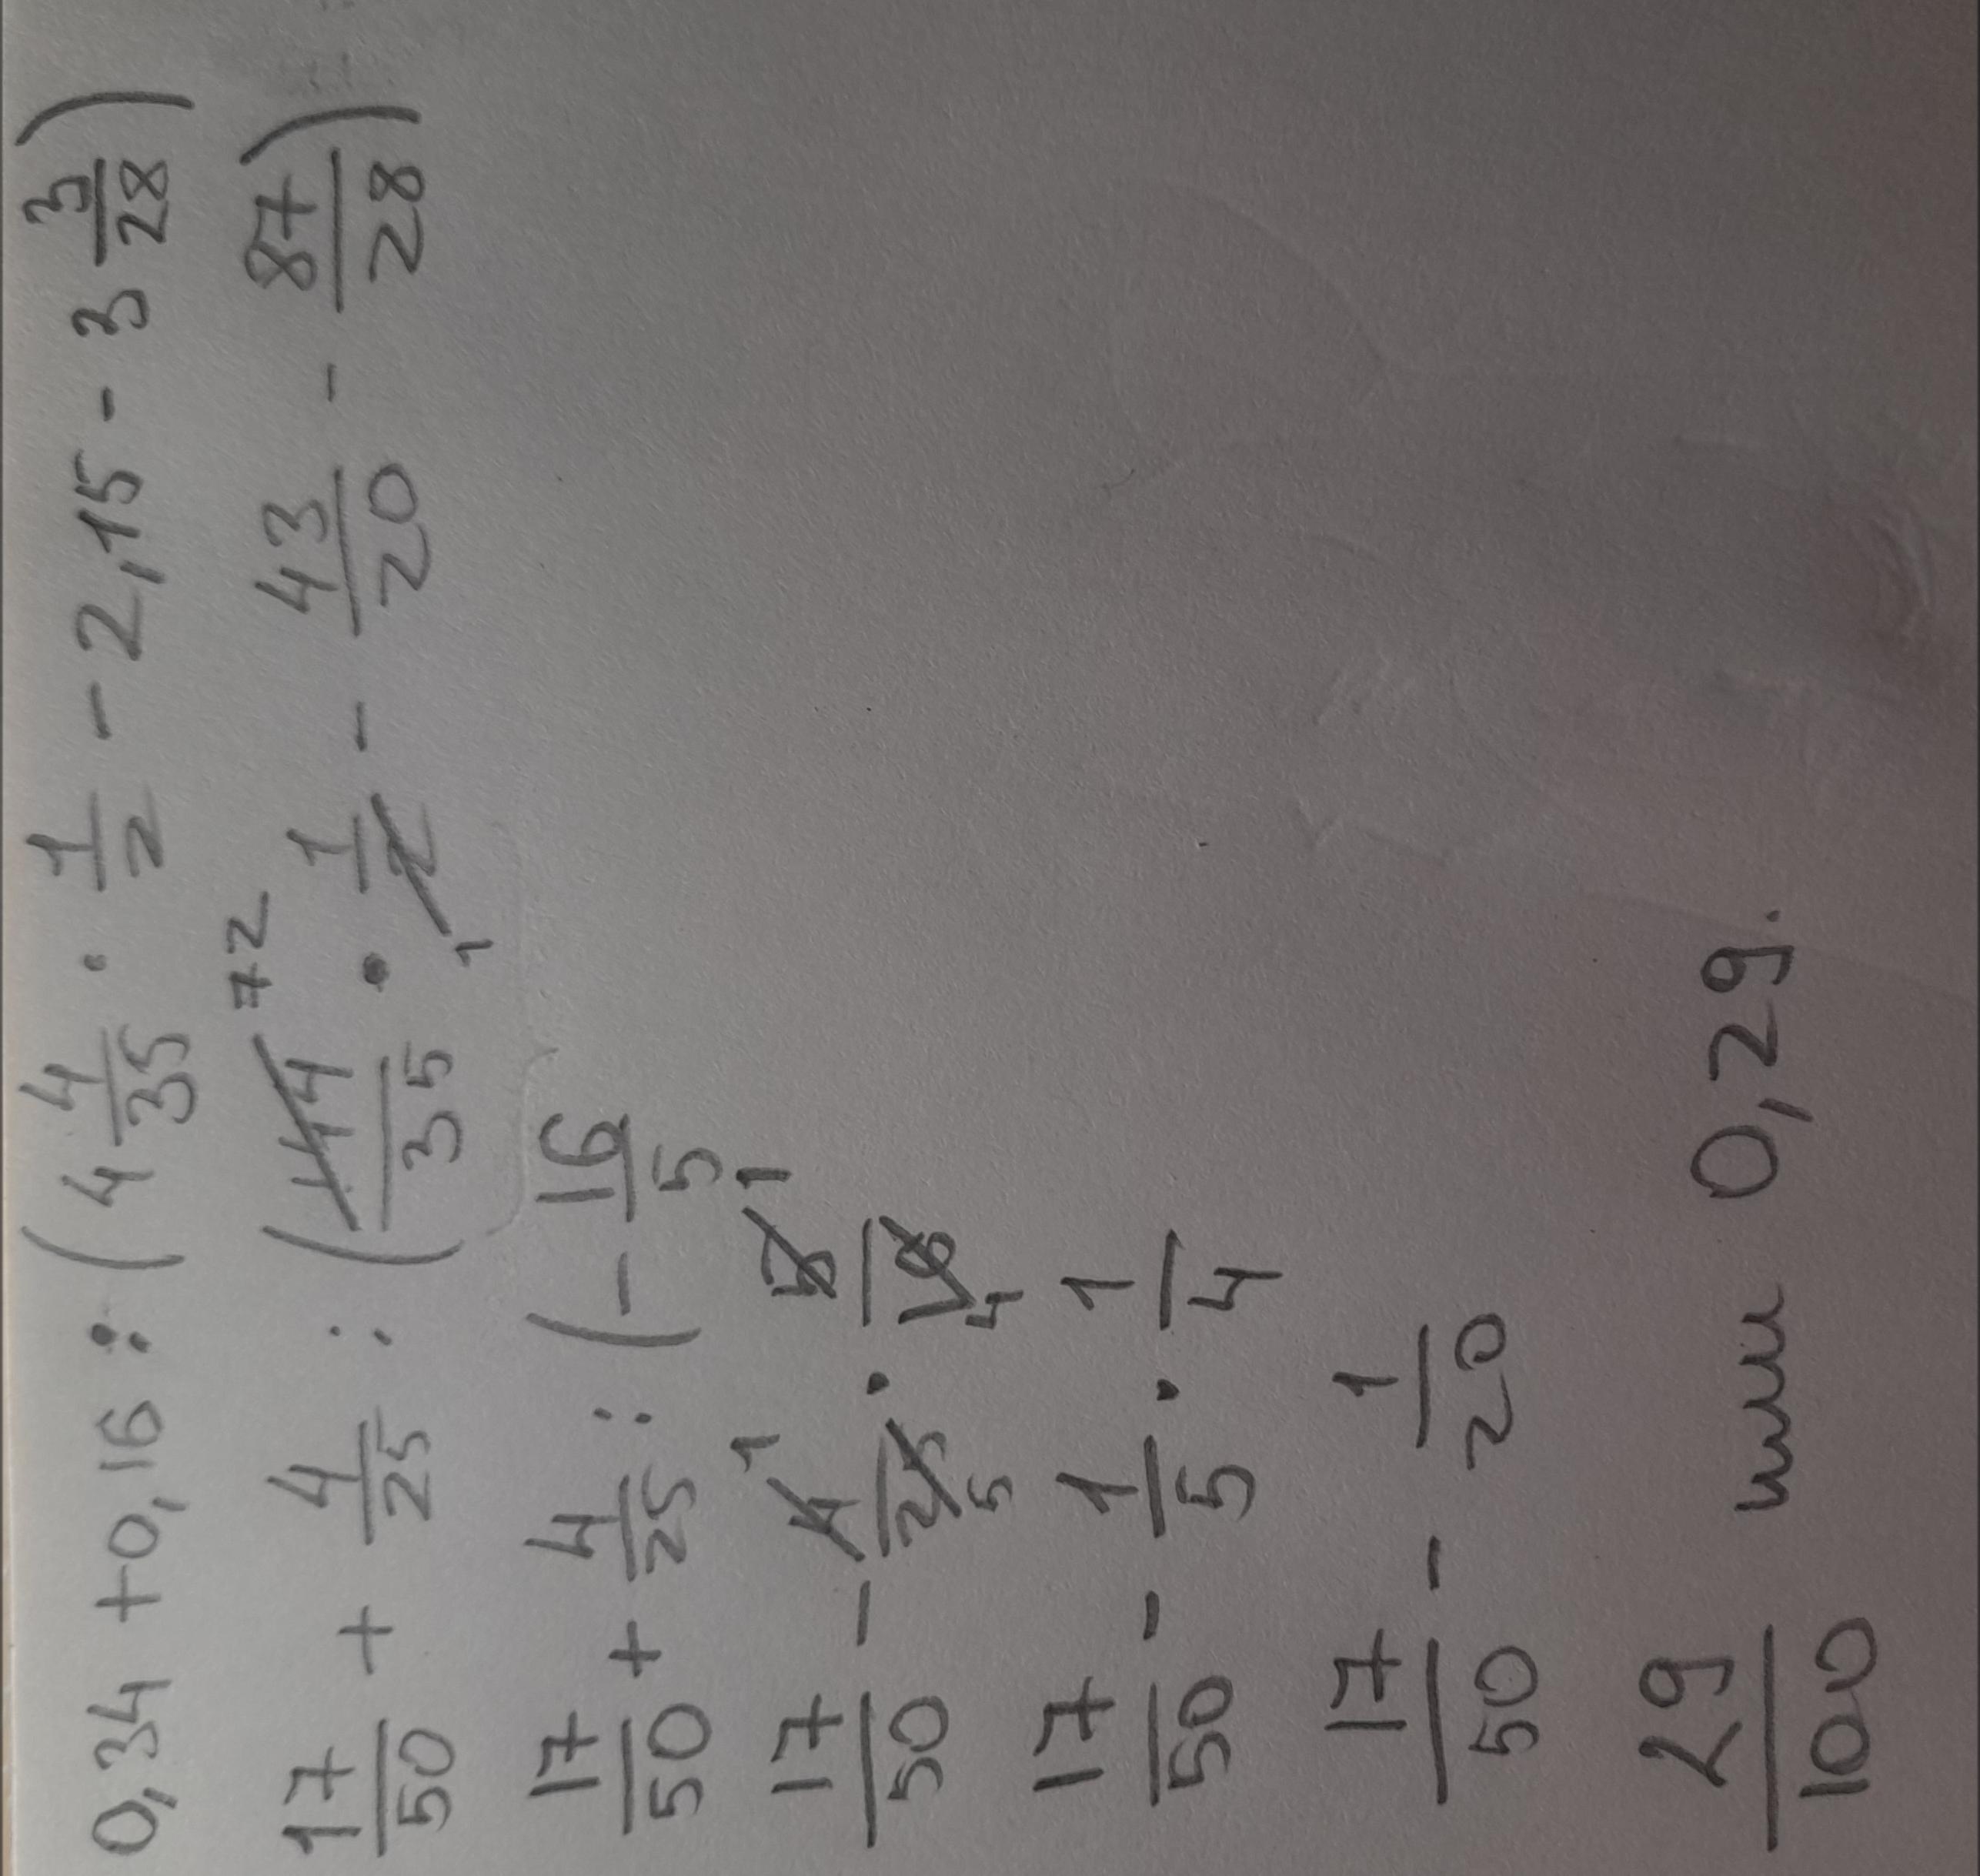 0,34 + 0,16 : (4 4/35 · 1/2 - 2,15 - 3 3/28)
17/50 + 4/25 : (144/35 72 · 1/2 1 - 43/20 - 87/28)
17/50 + 4/25 : (- 16/5
17/50 - 4/25 1 5 · 5/16 1 4
17/50 - 1/5 · 1/4
17/50 - 1/20
29/100 или 0,29.